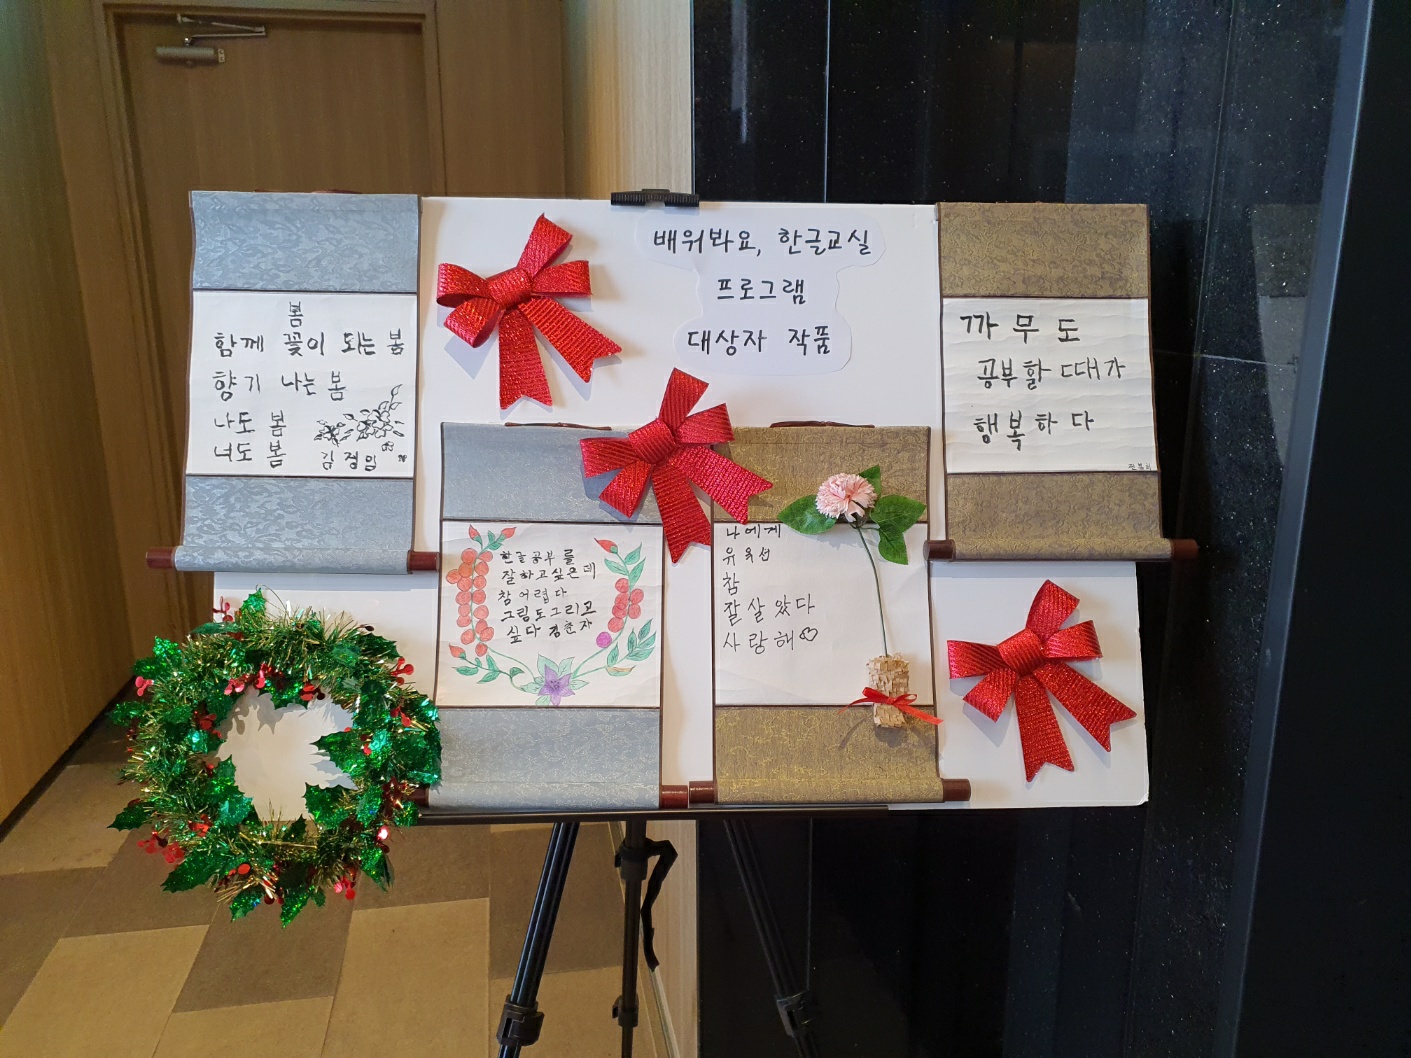 배워봐요, 한글교실
프로그램
대상자 작품
봄
함께 꽃이 되는 봄
향기 나는 봄
나도 봄
너도 봄
김정임
한글공부를
잘하고싶은데
참 어렵다
그림도그리고
싶다 경춘자
나에게
유옥선
참
잘살았다
사랑해♡
까무도
공부할 때가
행복하다